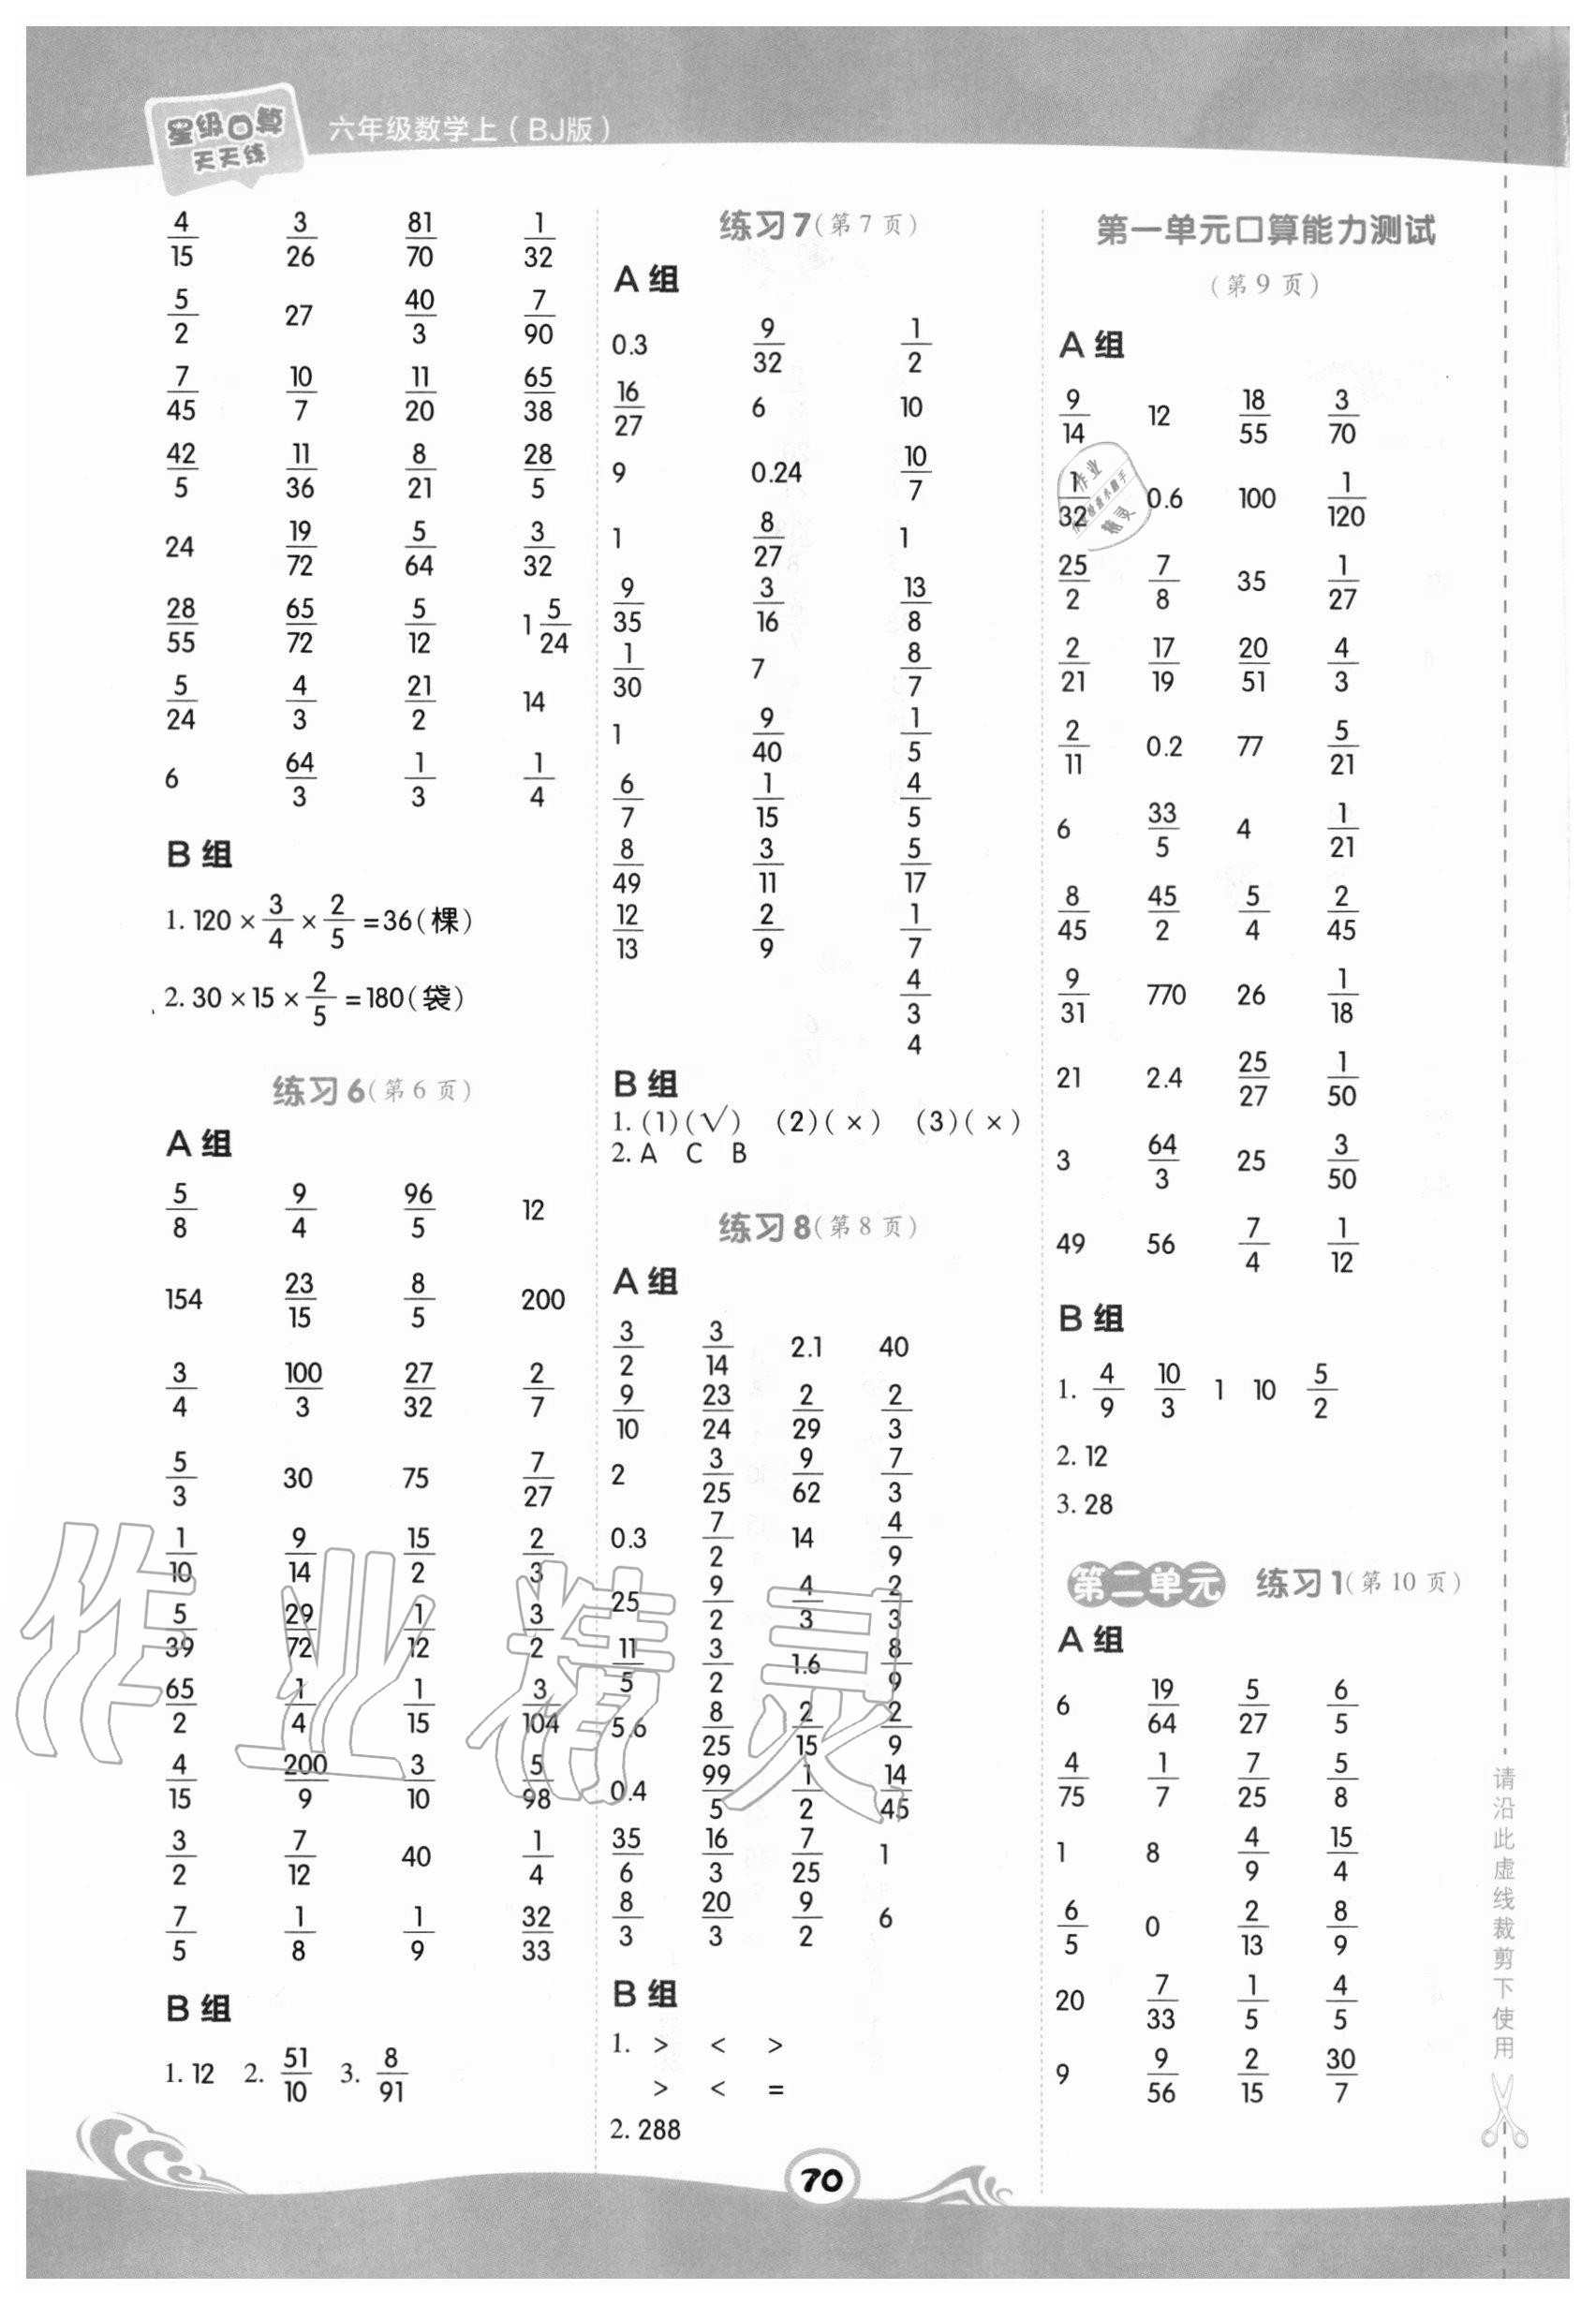 星级口算
天天练
六年级数学上(BJ版)
4/15 3/26 81/70 1/32
5/2 27 40/3 7/90
7/45 10/7 11/20 65/38
42/5 11/36 8/21 28/5
24 19/72 5/64 3/32
28/55 65/72 5/12 1 5/24
5/24 4/3 21/2 14
6 64/3 1/3 1/4
B组
1. 120×3/4×2/5=36(棵)
2. 30×15×2/5=180(袋)
练习6(第6页)
A组
5/8 9/4 96/5 12
154 23/15 8/5 200
3/4 100/3 27/32 2/7
5/3 30 75 7/27
1/10 9/14 15/2 2/3
5/39 29/72 1/12 3/2
65/2 1/4 1/15 3/104
4/15 200/9 3/10 5/98
3/2 7/12 40 1/4
7/5 1/8 1/9 32/33
B组
1. 12 2. 51/10 3. 8/91
练习7(第7页)
A组
0.3 9/32 1/2
16/27 6 10
9 0.24 10/7
1 8/27 1
9/35 3/16 13/8
1/30 7 8/7
1 9/40 1/5
6/7 1/15 4/5
8/49 3/11 5/17
12/13 2/9 1/7
4/3
4
B组
1. (1)(√) (2)(×) (3)(×)
2. A C B
练习8(第8页)
A组
3/2 3/14 2.1 40
9/10 23/24 2/29 2/3
2 3/25 9/62 7/3
0.3 7/2 14 4/9
25 9/2 4/3 2/3
11/5 3/2 1.6 8/9
5.6 8/25 2/15 2/9
0.4 99/5 1/2 14/45
35/6 16/3 7/25 1
8/3 20/3 9/2 6
B组
1. > < >
> < =
2. 288
第一单元口算能力测试
(第9页)
A组
9/14 12 18/55 3/70
1/32 0.6 100 1/120
25/2 7/8 35 1/27
2/21 17/19 20/51 4/3
2/11 0.2 77 5/21
6 33/5 4 1/21
8/45 45/2 5/4 2/45
9/31 770 26 1/18
21 2.4 25/27 1/50
3 64/3 25 3/50
49 56 7/4 1/12
B组
1. 4/9 10/3 1 10 5/2
2. 12
3. 28
第二单元 练习1(第10页)
A组
6 19/64 5/27 6/5
4/75 1/7 7/25 5/8
1 8 4/9 15/4
6/5 0 2/13 8/9
20 7/33 1/5 4/5
9 9/56 2/15 30/7
请沿此虚线裁剪下使用
70
作业精灵
作业
精灵